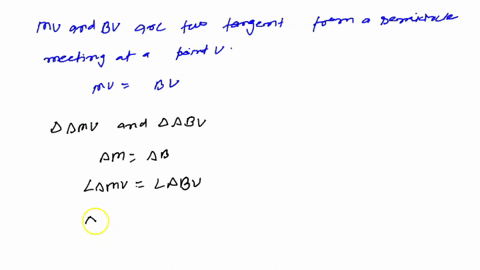 MV and BV are two tangent form a semicircle
meeting at a point V.
MV = BV
△AMV and △ABV
AM = AB
∠AMV = ∠ABV
A